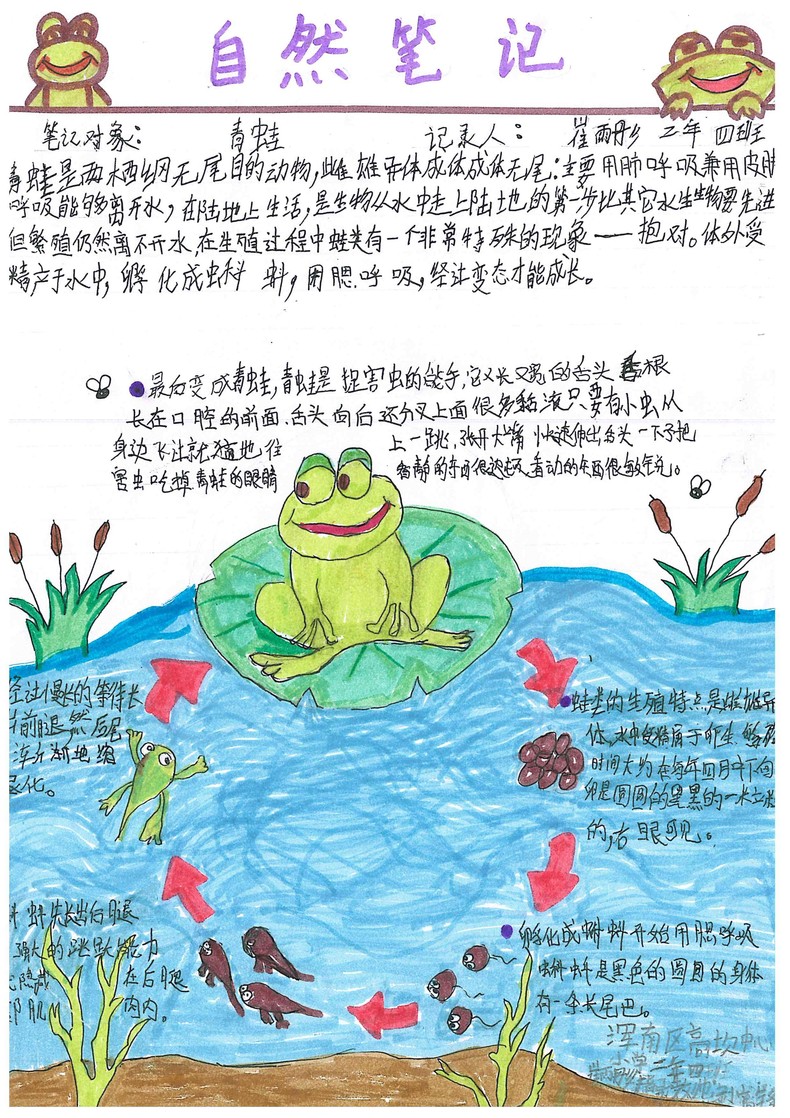 自然笔记
笔记对象： 青蛙 记录人： 崔雨彤 二年四班
青蛙是两栖纲无尾目的动物，雌雄异体成体成体无尾：主要用肺呼吸兼用皮肤
呼吸能够离开水，在陆地上生活，是生物从水中走上陆地的第一步比其它水生生物要先进
但繁殖仍然离不开水，在生殖过程中蛙类有一个非常特殊的现象——抱对。体外受
精产于水中，孵化成蝌蚪，用腮呼吸，经让变态才能成长。
最后变成青蛙，青蛙是捉害虫的能手，它又长又宽的舌头 舌根
长在口腔的前面，舌头向后还分叉上面很多黏液只要有小虫从
身边飞让就猛地往上一跳，张开大嘴快速伸出舌头一下子把
害虫吃掉青蛙的眼睛看静的东西很迟钝看动的东西很敏锐。
蛙类的生殖特点是雌雄异
体，水中受精属于卵生
时间大约在每年四月中下旬
卵是圆圆的黑黑的一
的，右眼可见。
孵化成蝌蚪开始用腮呼吸
蝌蚪是黑色的圆圆的身体
有一条长尾巴。
蚪先长出后腿
强大的跳跃能力
隐藏在后腿
肌肉内。
经过慢长的等待长
前腿然后尾
渐渐地缩
退化。
浑南区高坎中心
小学二年四班